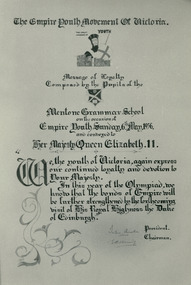 The Empire Youth Movement Of Victoria.
YOUTH
Message of Loyalty
Composed by the Pupils of the
Mentone Grammar School
on the occasion of
Empire Youth Sunday, 6 May, 1956,
and conveyed to
Her Majesty Queen Elizabeth. II.
We, the youth of Victoria, again express
our continued loyalty and devotion to
Your Majesty.
In this year of the Olympiad, we
trust that the bonds of Empire will
be further strengthened by the forthcoming
visit of His Royal Highness the Duke
of Edinburgh.
President.
Chairman.